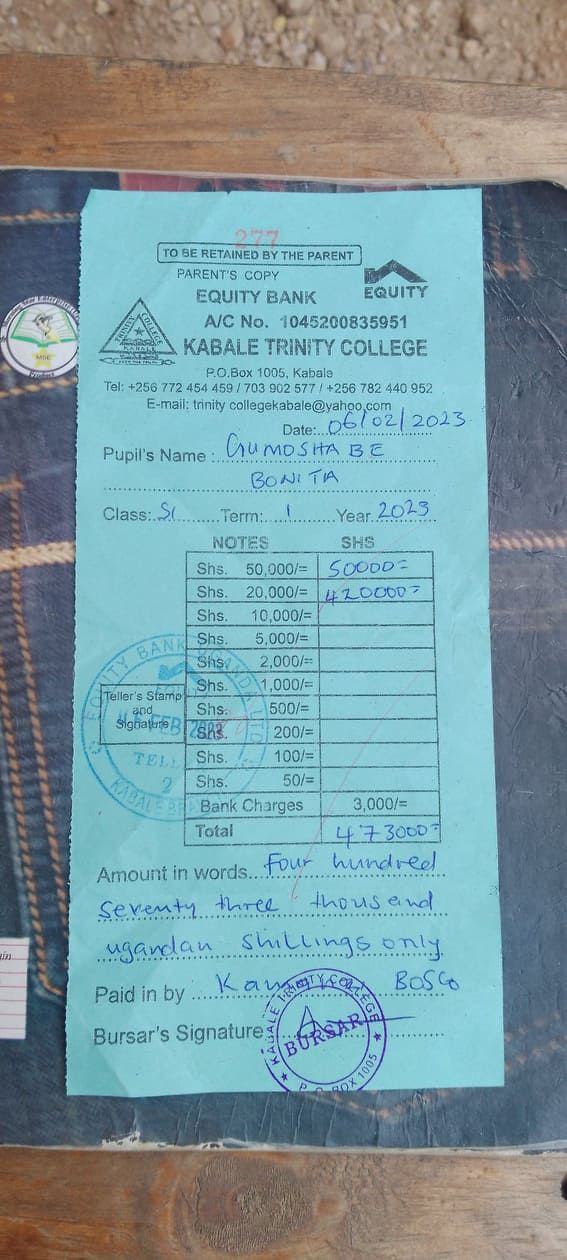 277
TO BE RETAINED BY THE PARENT
PARENT'S COPY
EQUITY
EQUITY BANK
A/C No. 1045200835951
TRINITY COLLEGE
KABALE
KABALE TRINITY COLLEGE
P.O.Box 1005, Kabale
Tel: +256 772 454 459 / 703 902 577 / +256 782 440 952
E-mail: trinity collegekabale@yahoo.com
Date:..06/02/2023
Pupil's Name : GUMOSHABE
BONITA
Class: S1 Term: 1 Year 2023
NOTES SHS
Shs. 50,000/= 50000=
Shs. 20,000/= 420000=
Shs. 10,000/=
Shs. 5,000/=
Shs. 2,000/=
Shs. 1,000/=
Shs. 500/=
Shs. 200/=
Shs. 100/=
Shs. 50/=
Bank Charges 3,000/=
Total 473000=
EQUITY BANK UGANDA LTD
Teller's Stamp
and
Signature
FEB
TELL
2
Amount in words... Four hundred
seventy three thousand
ugandan shillings only.
Paid in by BOSCO
Bursar's Signature
KABALE TRINITY COLLEGE
BURSAR
P.O. BOX 1005
MSE